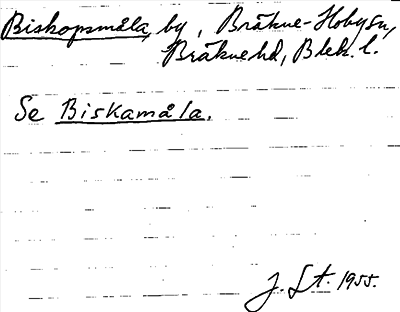 Biskopsmåla, by, Bräkne-Hoby sn,
Bräknehd, Blek. l.
Se Biskamåla.
J. St. 1955.